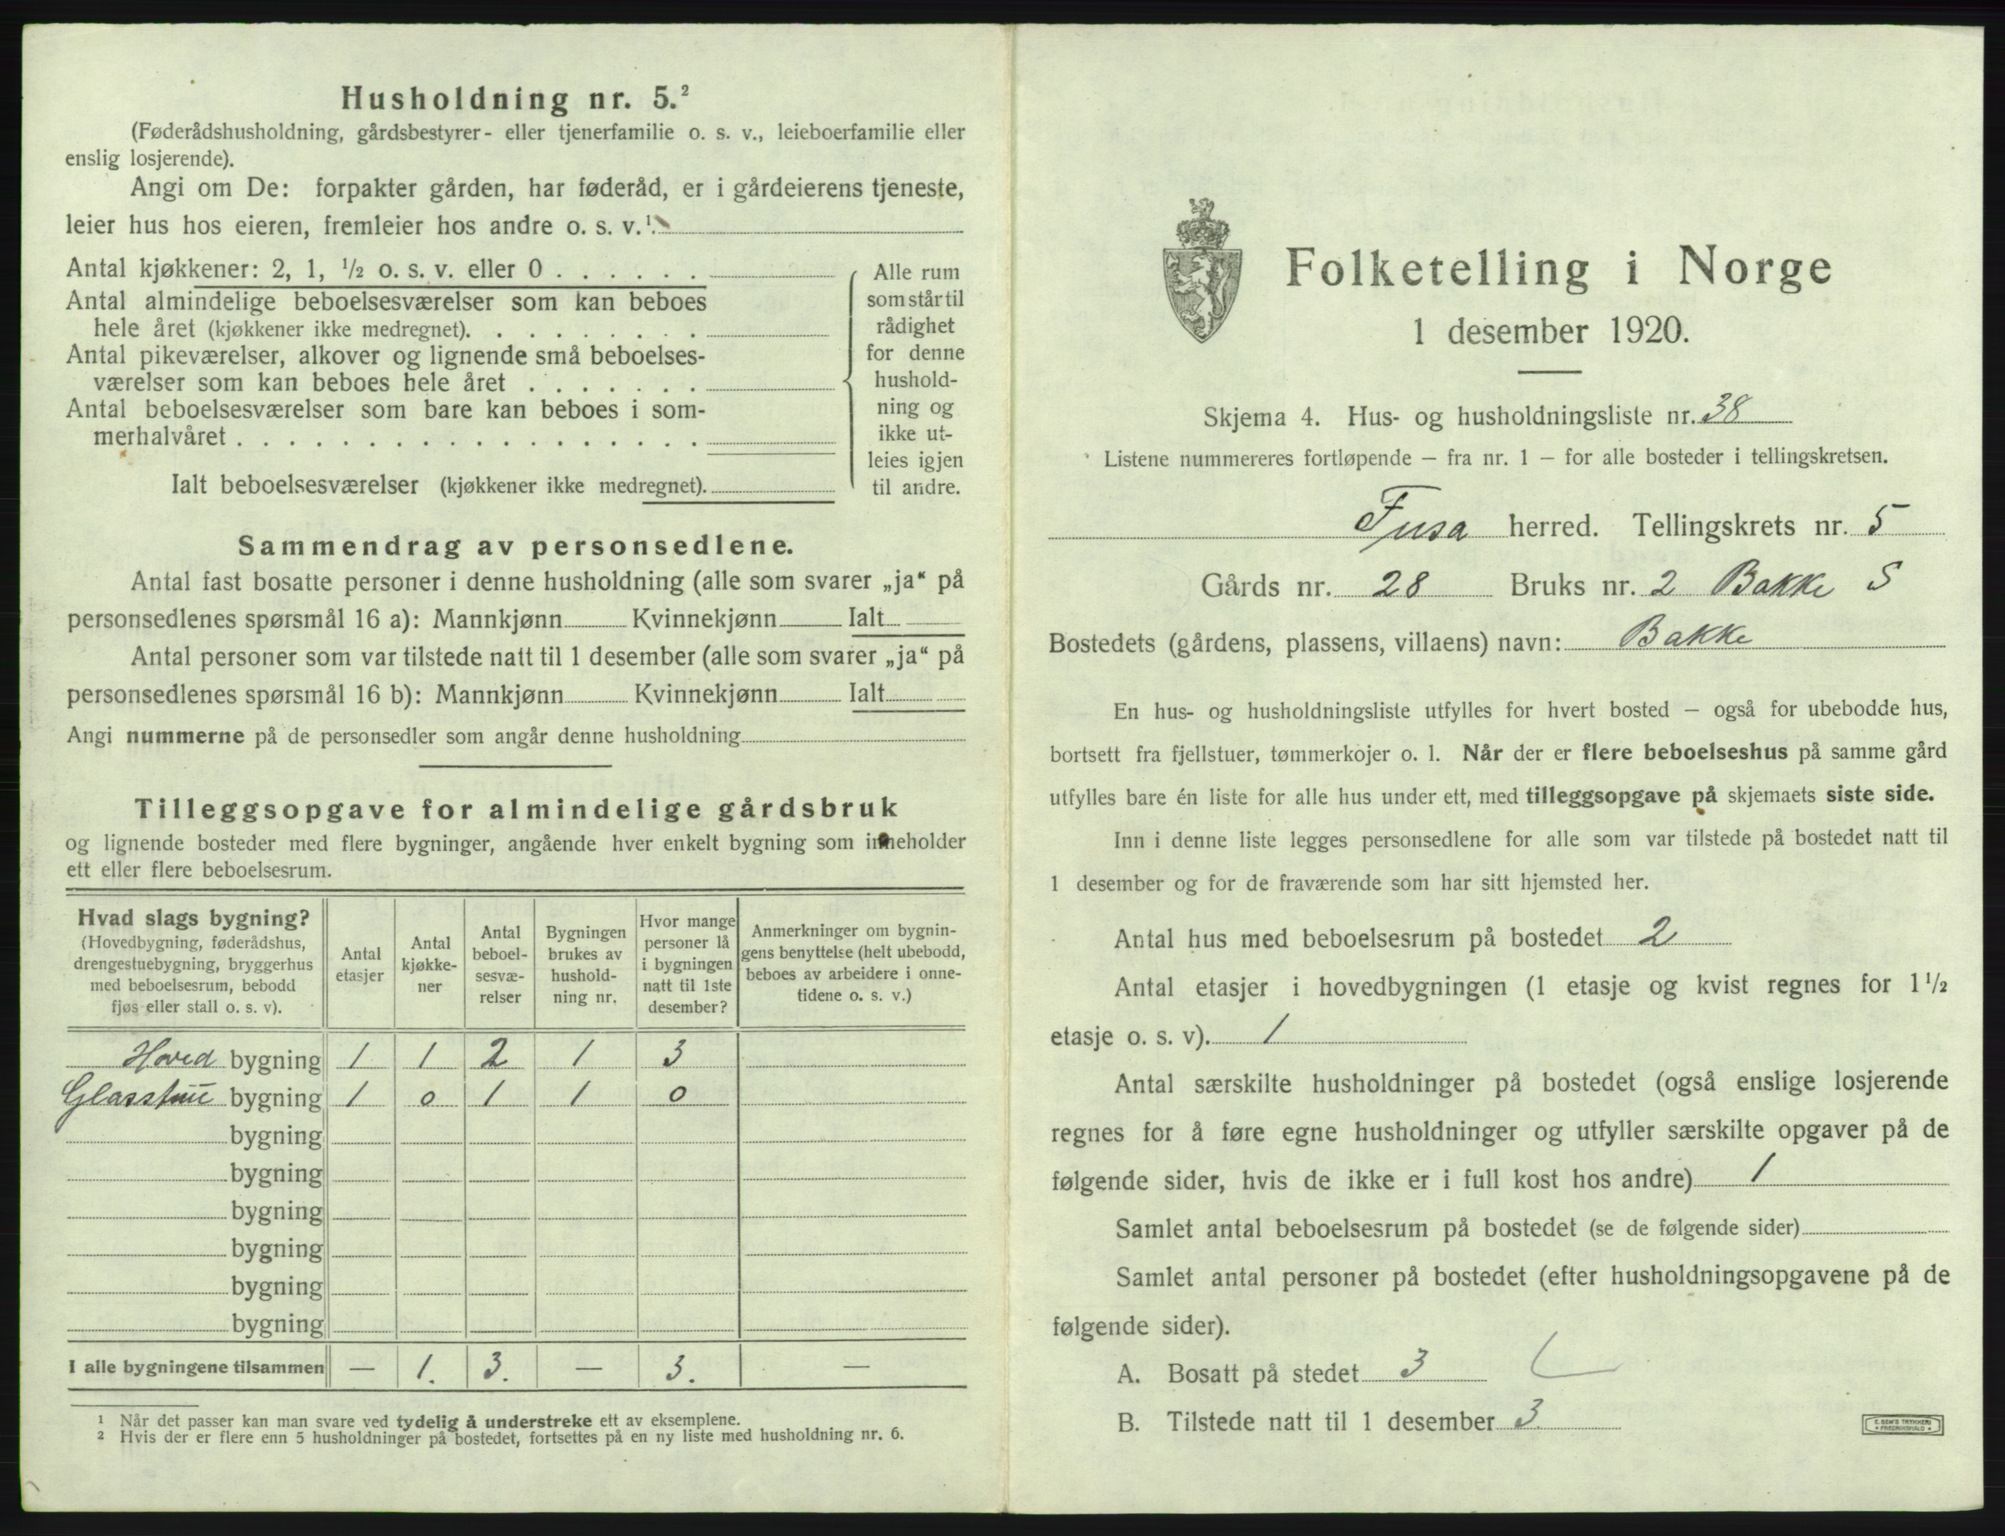 Husholdning nr. 5.²
(Føderådshusholdning, gårdsbestyrer- eller tjenerfamilie o. s. v., leieboerfamilie eller
enslig losjerende).
Angi om De: forpakter gården, har føderåd, er i gårdeierens tjeneste,
leier hus hos eieren, fremleier hos andre o. s. v.¹
Antal kjøkkener: 2, 1, ½ o. s. v. eller 0 . . . . . .
Antal almindelige beboelsesværelser som kan beboes
hele året (kjøkkener ikke medregnet). . . . . . . . .
Antal pikeværelser, alkover og lignende små beboelses-
værelser som kan beboes hele året . . . . . . .
Antal beboelsesværelser som bare kan beboes i som-
merhalvåret . . . . . . . . . . . . . . . . . .
Ialt beboelsesværelser (kjøkkener ikke medregnet).
Alle rum
som står til
rådighet
for denne
hushold-
ning og
ikke ut-
leies igjen
til andre.
Sammendrag av personsedlene.
Antal fast bosatte personer i denne husholdning (alle som svarer „ja“ på
personsedlenes spørsmål 16 a): Mannkjønn Kvinnekjønn Ialt
Antal personer som var tilstede natt til 1 desember (alle som svarer „ja“ på
personsedlenes spørsmål 16 b): Mannkjønn Kvinnekjønn Ialt
Angi nummerne på de personsedler som angår denne husholdning
Tilleggsopgave for almindelige gårdsbruk
og lignende bosteder med flere bygninger, angående hver enkelt bygning som inneholder
ett eller flere beboelsesrum.
Hvad slags bygning?
(Hovedbygning, føderådshus,
drengestuebygning, bryggerhus
med beboelsesrum, bebodd
fjøs eller stall o. s. v).
Antal
etasjer
Antal
kjøkke-
ner
Antal
beboel-
sesvæ-
relser
Bygningen
brukes av
hushold-
ning nr.
Hvor mange
personer lå
i bygningen
natt til 1ste
desember?
Anmerkninger om bygnin-
gens benyttelse (helt ubebodd,
beboes av arbeidere i onne-
tidene o. s. v.)
Hoved bygning 1 1 2 1 3
Glasstue bygning 1 0 1 1 0
bygning
bygning
bygning
bygning
bygning
bygning
I alle bygningene tilsammen — 1. 3. — 3. —
¹ Når det passer kan man svare ved tydelig å understreke ett av eksemplene.
² Hvis der er flere enn 5 husholdninger på bostedet, fortsettes på en ny liste med husholdning nr. 6.
Folketelling i Norge
1 desember 1920.
Skjema 4. Hus- og husholdningsliste nr. 38
Listene nummereres fortløpende — fra nr. 1 — for alle bosteder i tellingskretsen.
Fusa herred. Tellingskrets nr. 5
Gårds nr. 28 Bruks nr. 2 Bakke S
Bostedets (gårdens, plassens, villaens) navn: Bakke
En hus- og husholdningsliste utfylles for hvert bosted — også for ubebodde hus,
bortsett fra fjellstuer, tømmerkojer o. l. Når der er flere beboelseshus på samme gård
utfylles bare én liste for alle hus under ett, med tilleggsopgave på skjemaets siste side.
Inn i denne liste legges personsedlene for alle som var tilstede på bostedet natt til
1 desember og for de fraværende som har sitt hjemsted her.
Antal hus med beboelsesrum på bostedet 2
Antal etasjer i hovedbygningen (1 etasje og kvist regnes for 1½
etasje o. s. v). 1
Antal særskilte husholdninger på bostedet (også enslige losjerende
regnes for å føre egne husholdninger og utfyller særskilte opgaver på de
følgende sider, hvis de ikke er i full kost hos andre) 1
Samlet antal beboelsesrum på bostedet (se de følgende sider)
Samlet antal personer på bostedet (efter husholdningsopgavene på de
følgende sider).
A. Bosatt på stedet 3
B. Tilstede natt til 1 desember 3.